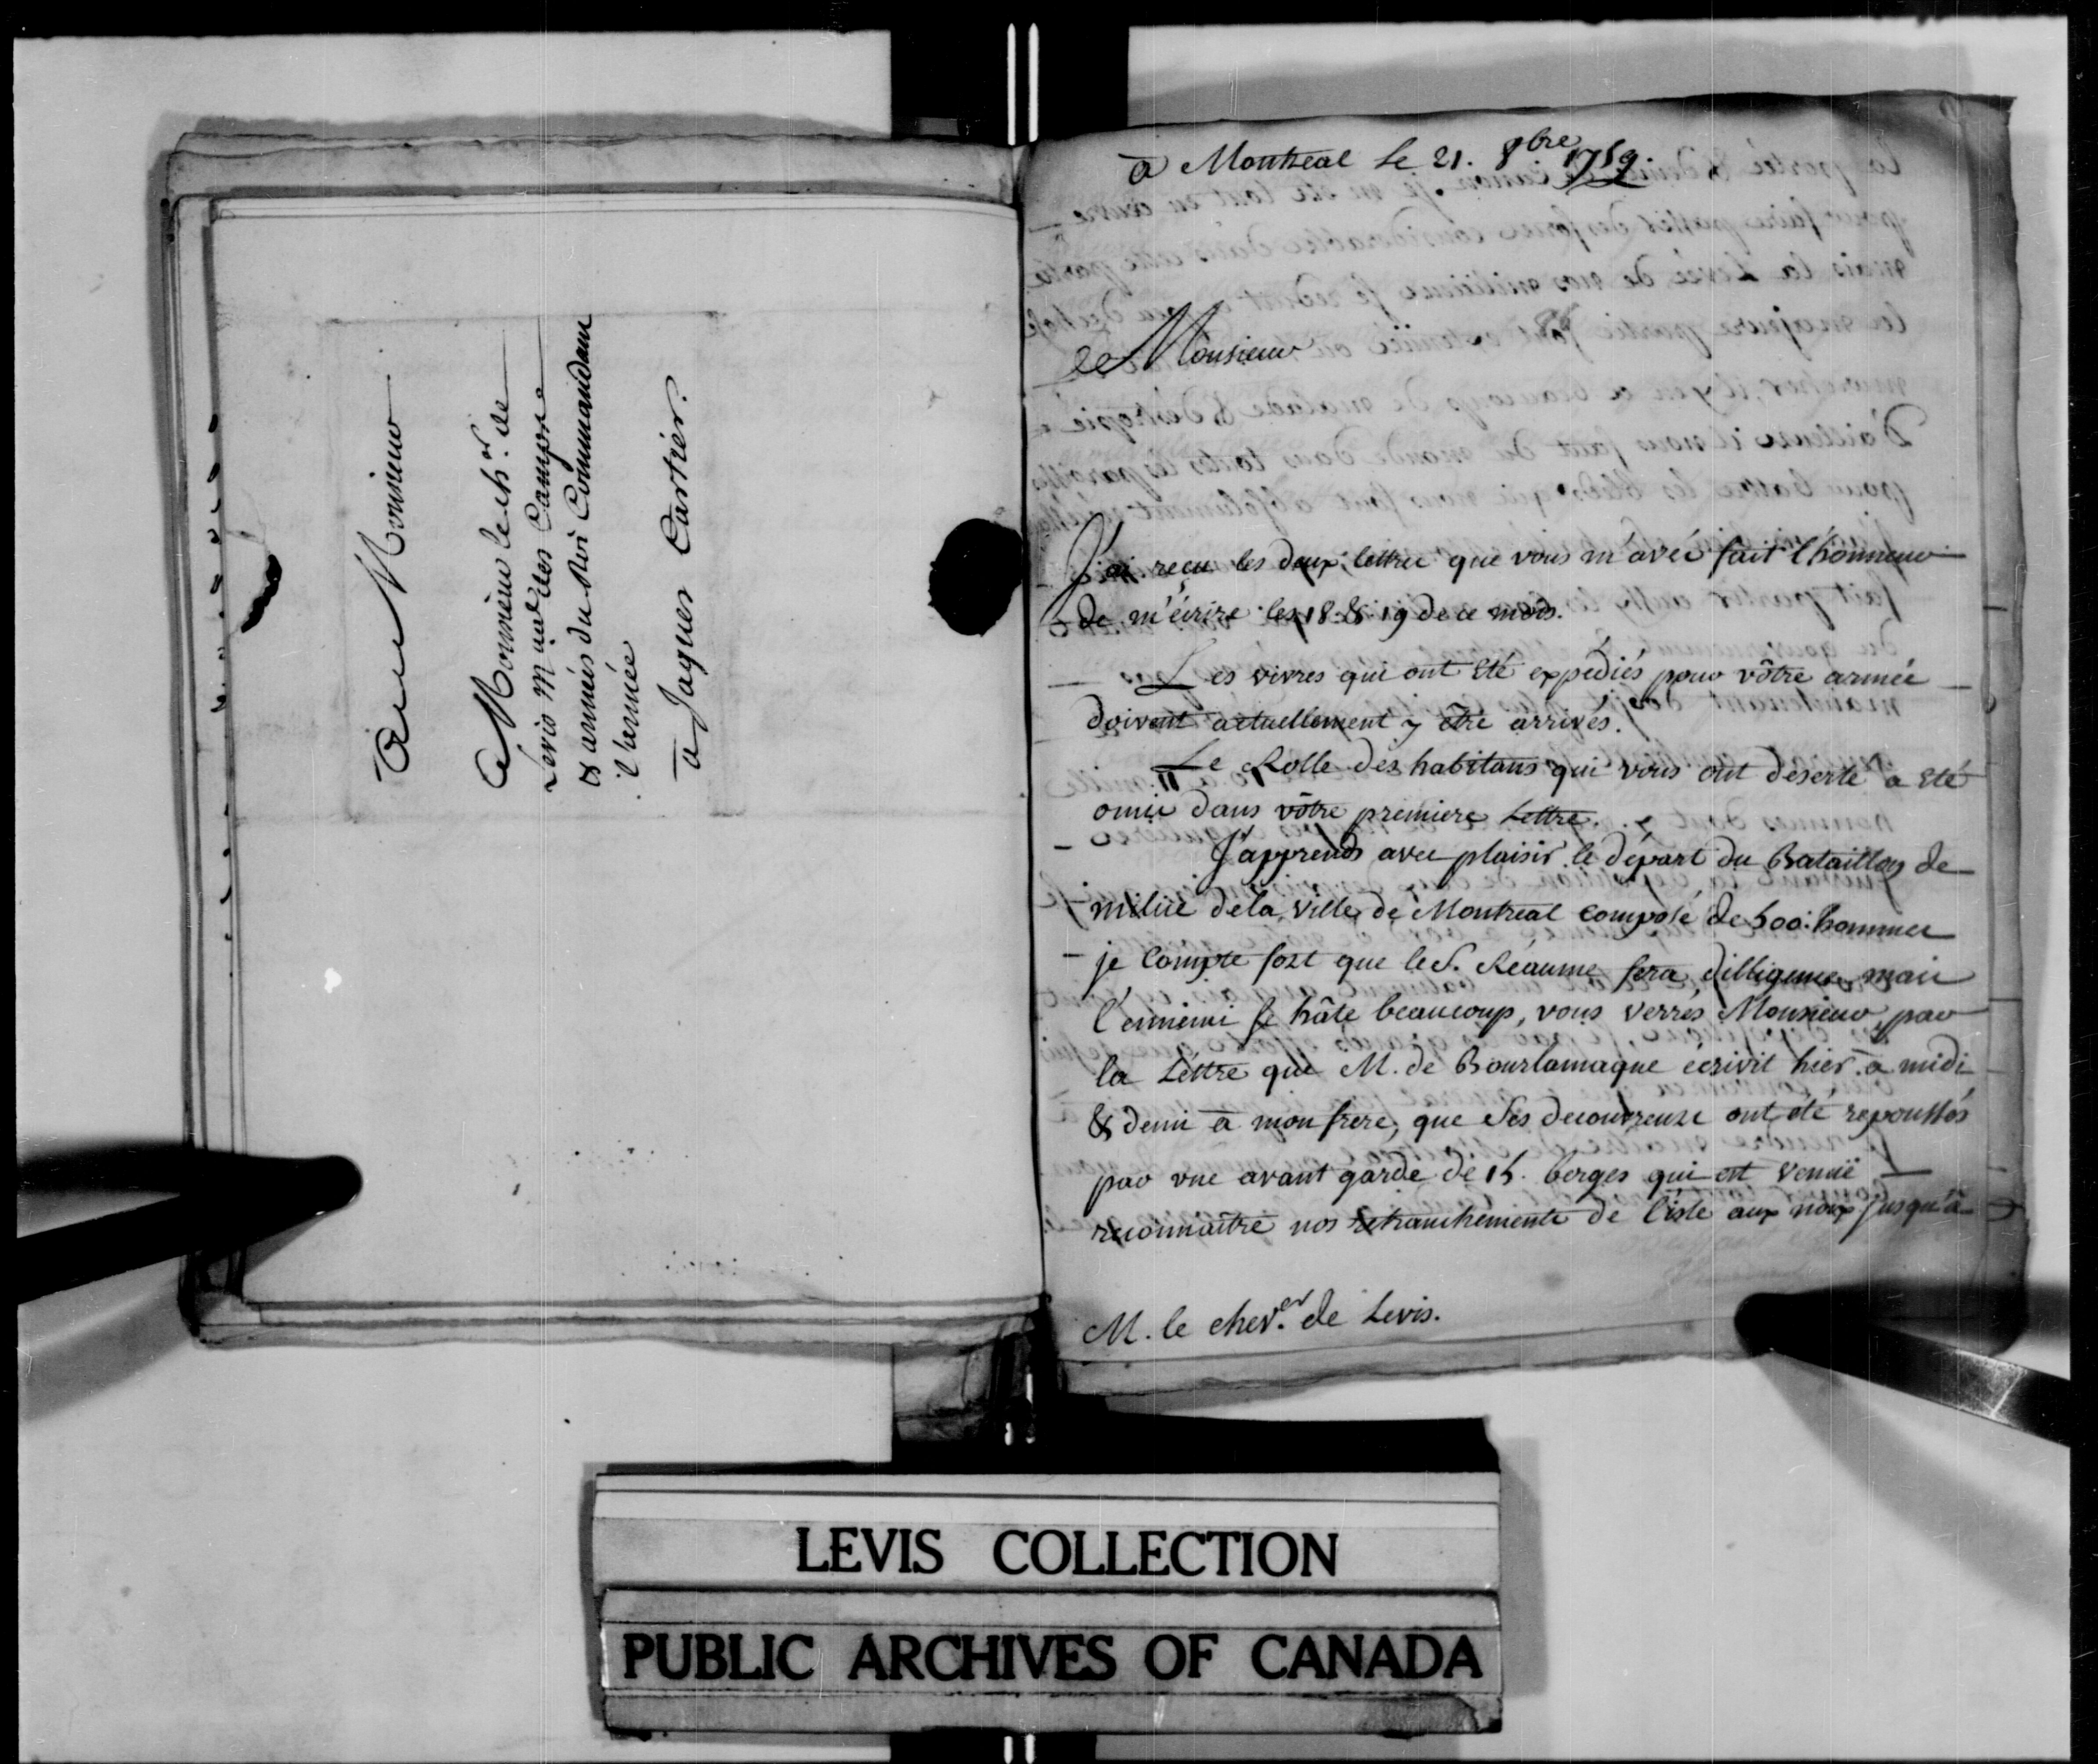 A Monsieur
A Monsieur le ch.er de
Levis M.al des Camps
& armées du Roi Commandant
l'armée
à Jaques Cartier.
à Montreal le 21. 8bre 1759.
Monsieur
J'ai reçu les deux lettres que vous m'avés fait l'honneur
de m'écrire les 18. & 19 de ce mois.
Les vivres qui ont été expédiés pour vôtre armée
doivent actuellement y être arrivés.
Le Rolle des habitans qui vous ont deserté a été
omis dans vôtre premiere Lettre.
J'apprends avec plaisir le départ du Bataillon de
milice de la ville de Montreal composé de 500. hommes
je Compte fort que le S. Réaume fera dilligence mais
l'ennemi se hâte beaucoup, vous verrés, Monsieur, par
la Léttre que M. de Bourlamaque écrivit hier à midi
& demi à mon frere, que ses decouvreurs ont été repoussés
par une avant garde de 15. berges qui est venuë
reconnaître nos retranchements de l'isle aux noix jusqu'à
M. le chev.er de Levis.
LEVIS COLLECTION
PUBLIC ARCHIVES OF CANADA